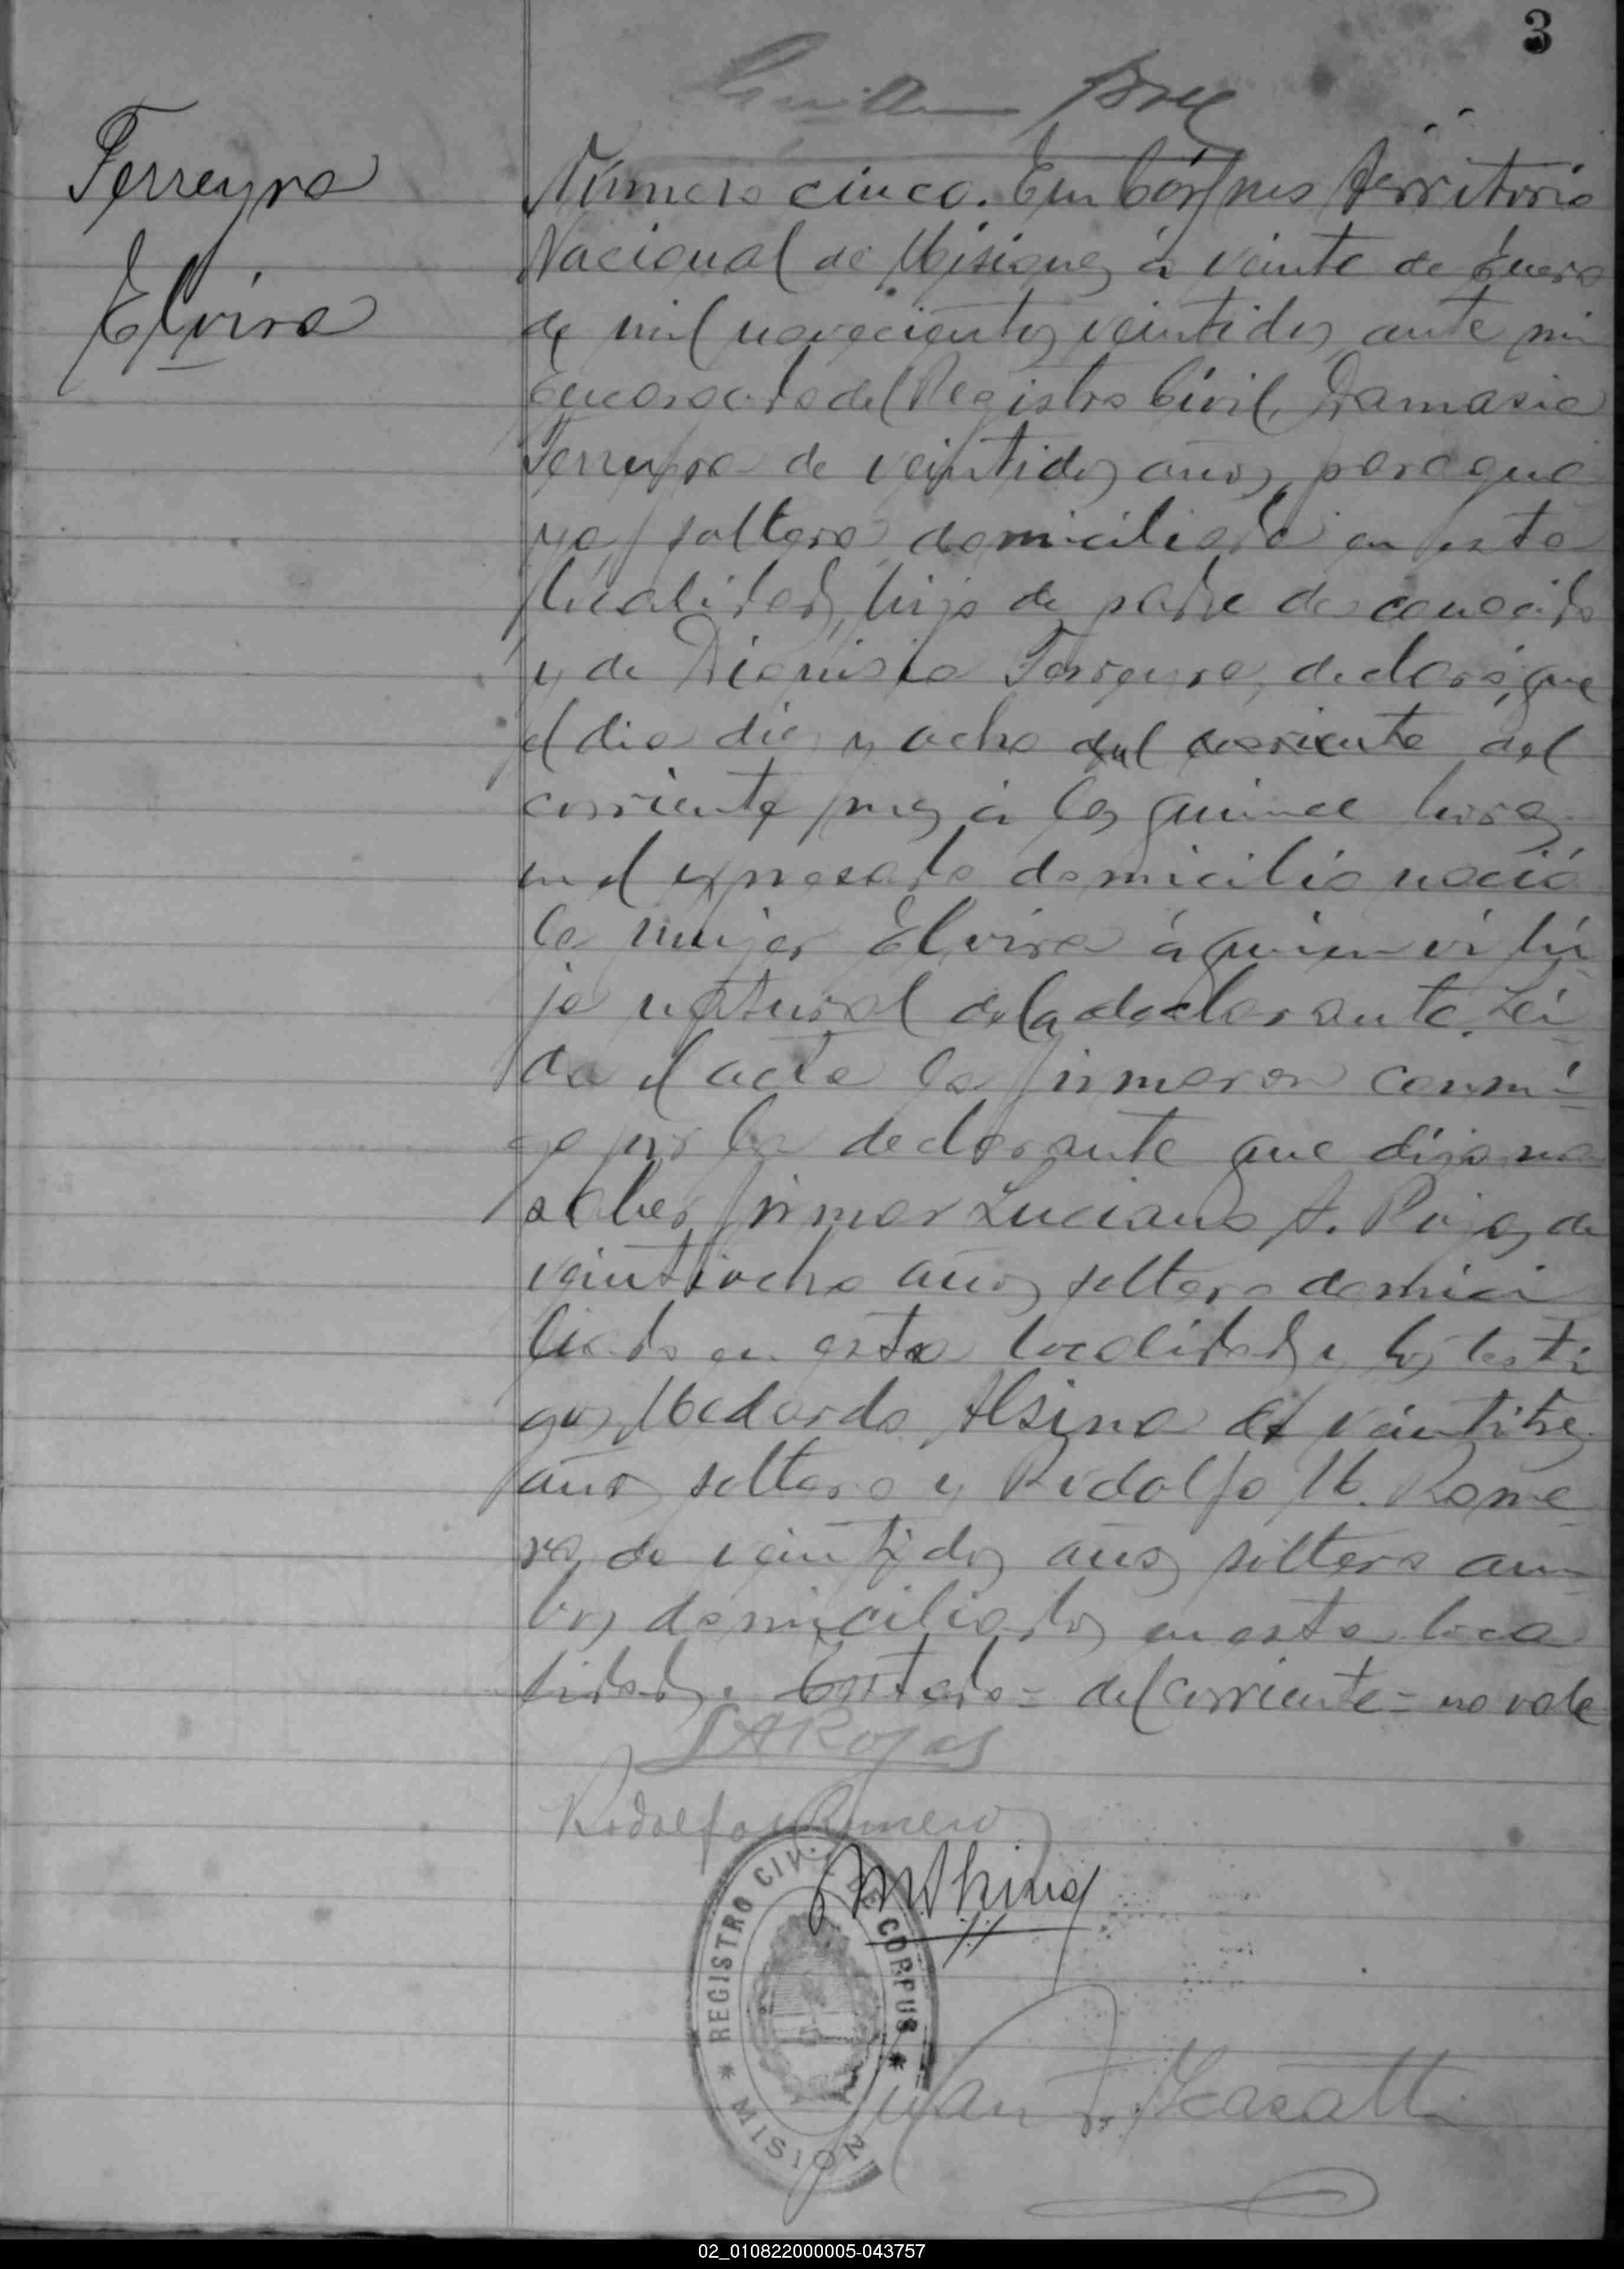 3
Ferreyra
Elvira
Número cinco. En Córpus territorio
Nacional de Misiones á veinte de Enero
de mil novecientos veintidos, ante mi
Encargado del Registro Civil, Damasia
Ferreyra de veintidos años, paragua
ya, soltera, domiciliada en esta
localidad, hija de padre desconocido
y de Dionisia Ferreyra, declaró, que
el dia diez y ocho del corriente del
corriente mes á las quince horas
en el expresado domicilio nació
la mujer Elvira á quien vi hi
ja natural de la declarante. Lei
da el acta la firmaron conmi
go por la declarante que dijo no
saber firmar Luciano A. Rojas, de
veintiocho años soltero domici
liado en esta localidad y los testi
gos, Medardo Alsina de veintitres
años soltero y Rodolfo M. Rome
ro, de veintidos años soltero am
bos domiciliados en esta loca
lidad. Testado = del corriente = no vale
LARojas
Rodolfo Romero
MAlsina
REGISTRO CIVIL DE CORPUS
* MISION
Juan F. Casatti
02_010822000005-043757